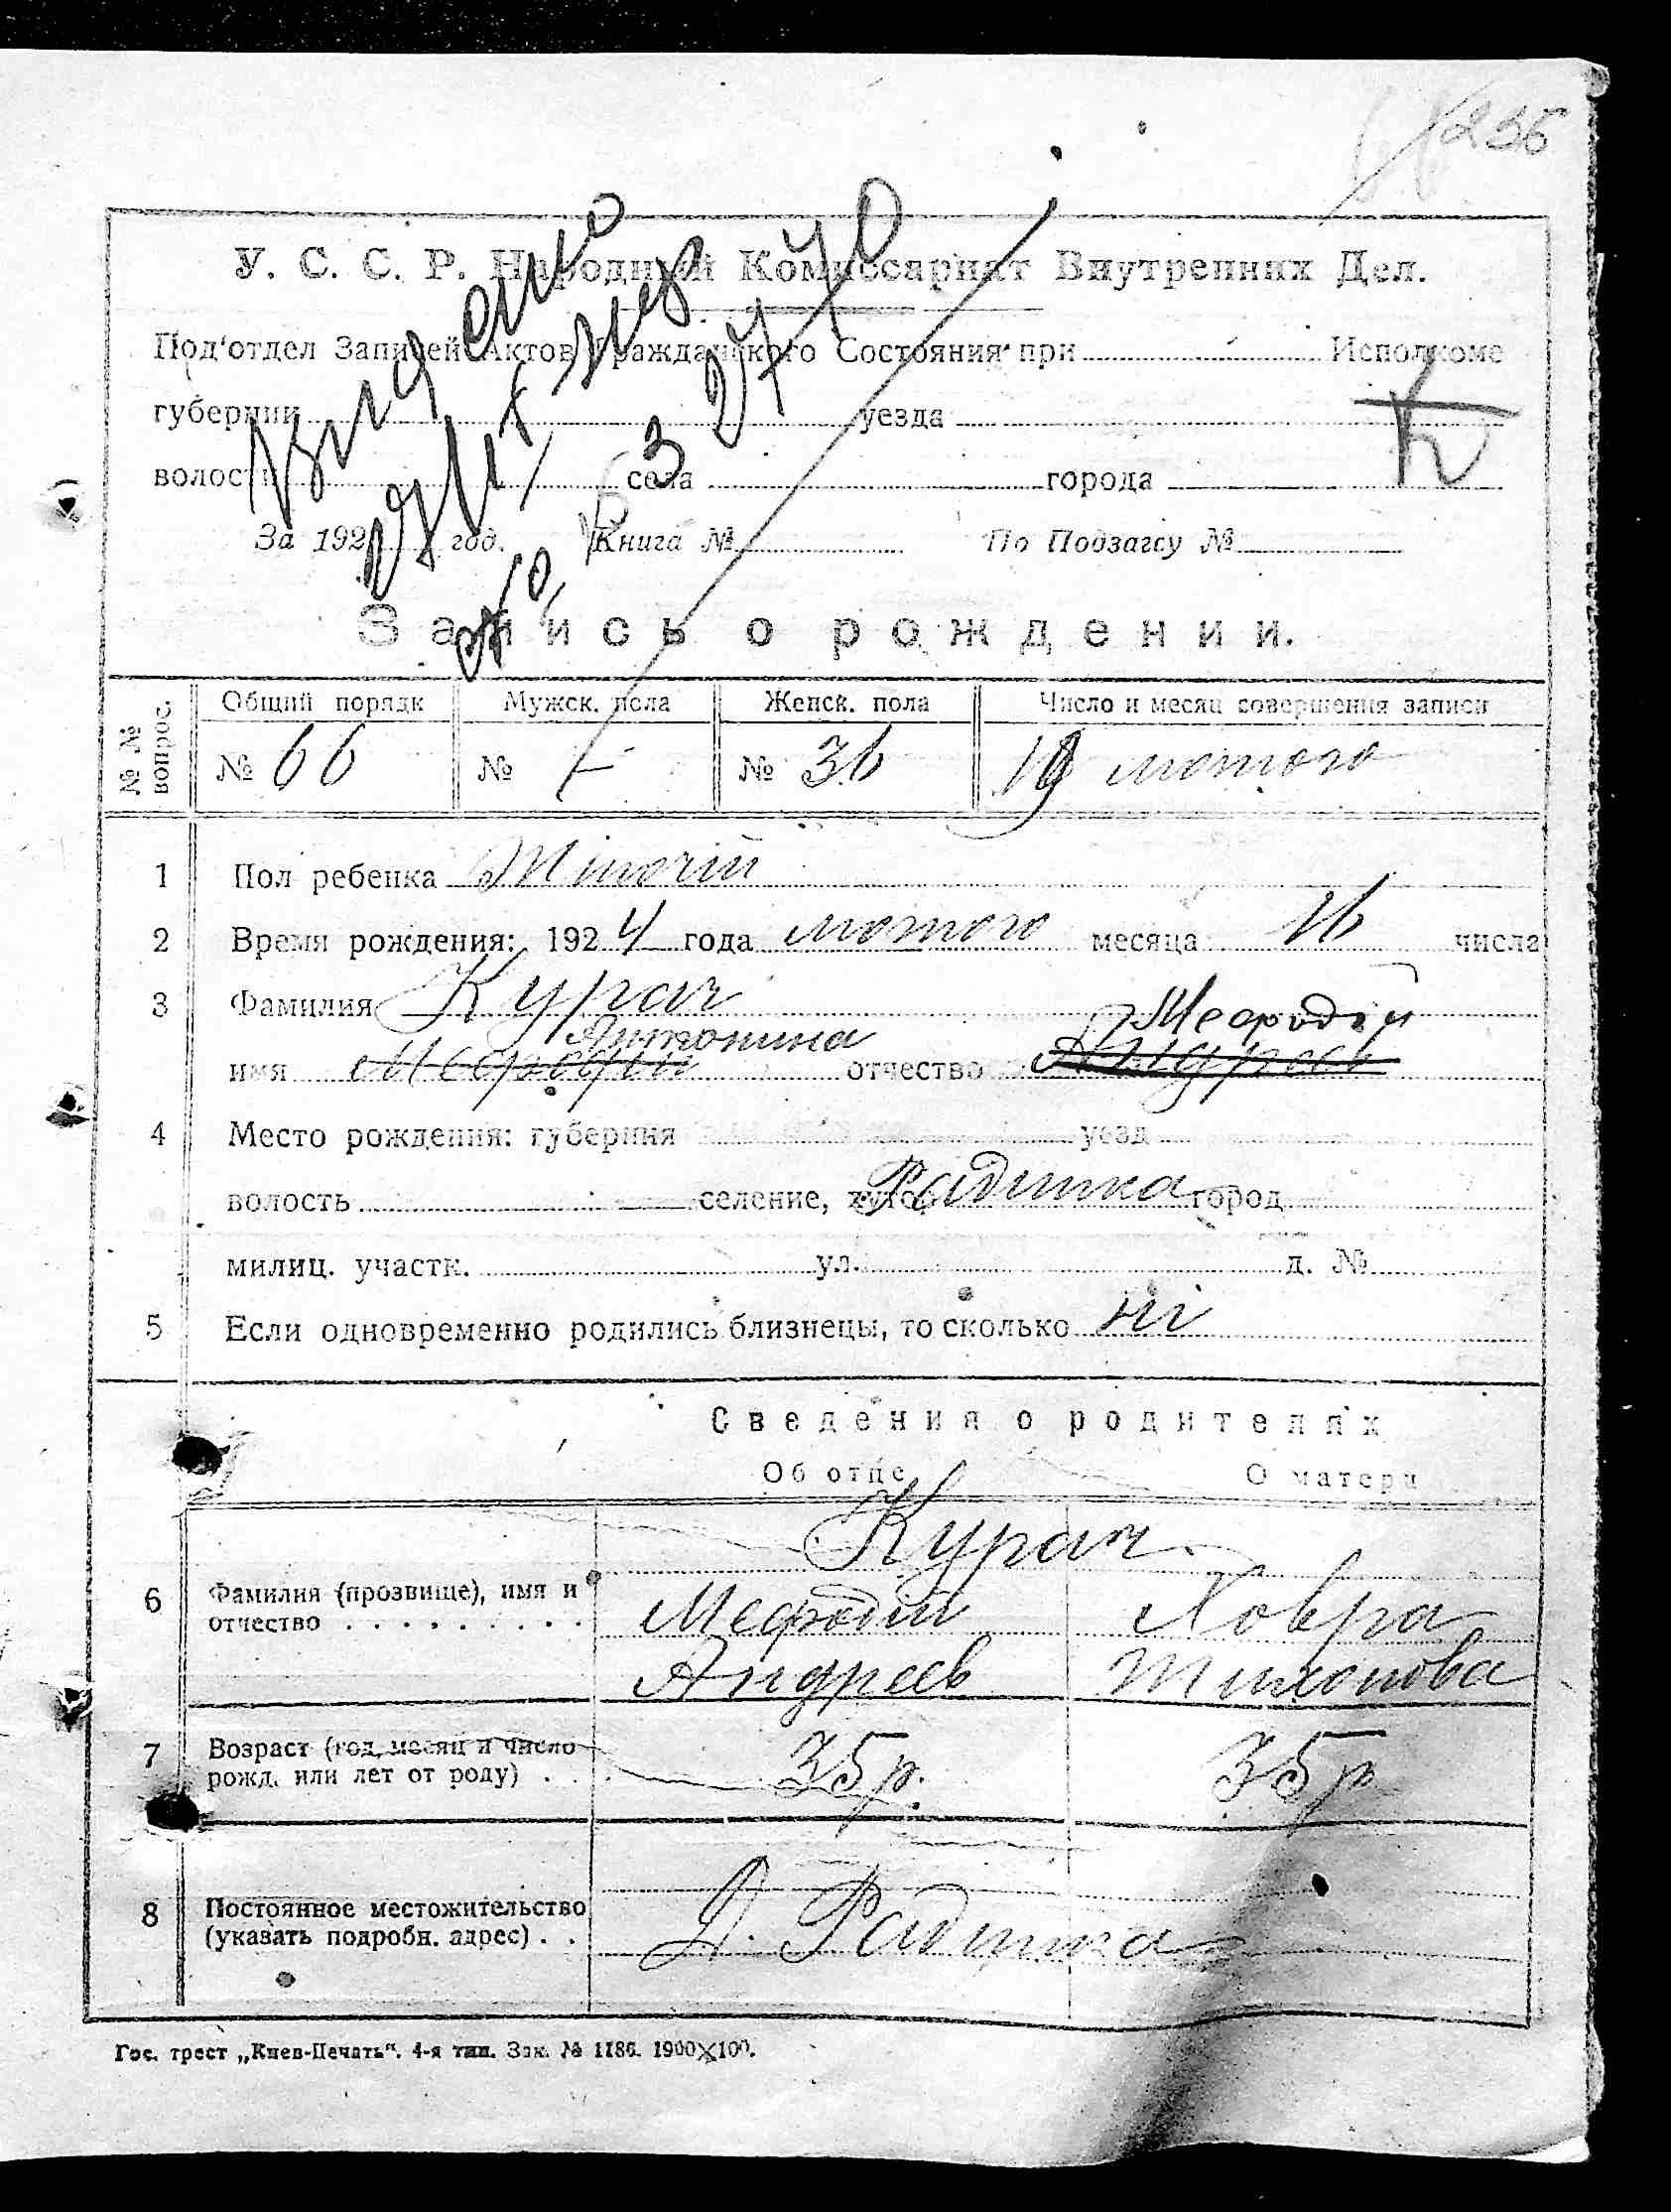 236
У. С. С. Р. Народний Комиссариат Внутренних Дел.
Под'отдел Записей Актов Гражданского Состояния при Исполкоме
губернии уезда
волости села города
За 192 год. Книга № По Подзагсу №
Видено
Запись о рождении.
№ № вопрос. Общий порядк Мужск. пола Женск. пола Число и месяц совершения записи
№ 66 № — № 36 19 лютого
1 Пол ребенка Жіночій
2 Время рождения: 1924 года лютого месяца 16 числа
3 Фамилия Курач
Антонина Мефодій
имя Мефодій отчество Андреев
4 Место рождения: губерния уезд
волость селение, хутор Радимка город
милиц. участк. ул. д. №
5 Если одновременно родились близнецы, то сколько ні
Сведения о родителях
Об отце О матери
Курач
6 Фамилия (прозвище), имя и отчество Мефодій Ховра
Андреев Тихонова
7 Возраст (год, месяц и число рожд. или лет от роду) 35 р. 35 р
8 Постоянное местожительство
(указать подробн. адрес) Д. Радимка
Гос. трест „Киев-Печать“. 4-я тип. Зак. № 1186. 1900×100.